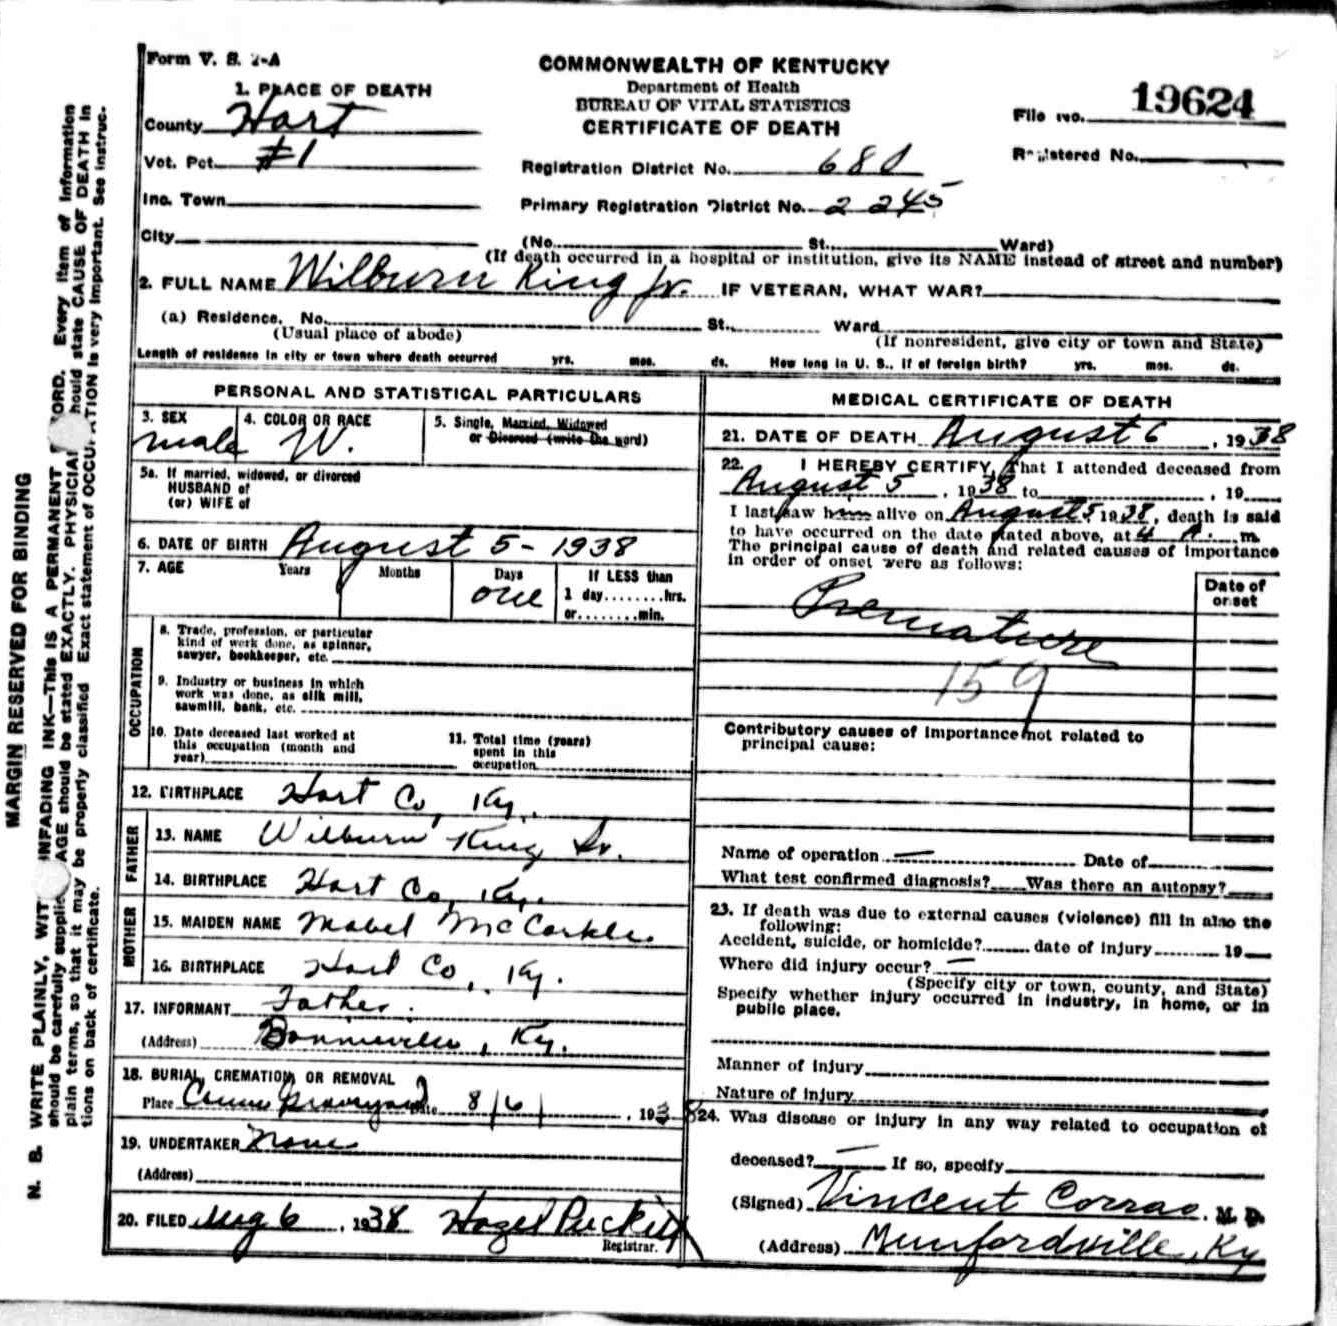 Form V. S. 2-A
COMMONWEALTH OF KENTUCKY
Department of Health
BUREAU OF VITAL STATISTICS
CERTIFICATE OF DEATH
File No. 19624
Registered No.
1. PLACE OF DEATH
County Hart
Vot. Pct. #1
Inc. Town
City
Registration District No. 680
Primary Registration District No. 2245
(No. St. Ward)
(If death occurred in a hospital or institution, give its NAME instead of street and number)
2. FULL NAME Wilburn King Jr. IF VETERAN, WHAT WAR?
(a) Residence. No. St. Ward
(Usual place of abode) (If nonresident, give city or town and State)
Length of residence in city or town where death occurred yrs. mos. ds. How long in U. S., if of foreign birth? yrs. mos. ds.
PERSONAL AND STATISTICAL PARTICULARS
3. SEX 4. COLOR OR RACE 5. Single, Married, Widowed
male W. or Divorced (write the word)
5a. If married, widowed, or divorced
HUSBAND of
(or) WIFE of
6. DATE OF BIRTH August 5 - 1938
7. AGE Years Months Days If LESS than
one 1 day........hrs.
or........min.
OCCUPATION
8. Trade, profession, or particular
kind of work done, as spinner,
sawyer, bookkeeper, etc.
9. Industry or business in which
work was done, as silk mill,
sawmill, bank, etc.
10. Date deceased last worked at
this occupation (month and
year)
11. Total time (years)
spent in this
occupation
12. BIRTHPLACE Hart Co, Ky.
FATHER
13. NAME Wilburn King Sr.
14. BIRTHPLACE Hart Co, Ky.
MOTHER
15. MAIDEN NAME Mabel McCorkle
16. BIRTHPLACE Hart Co, Ky.
17. INFORMANT Father.
(Address) Bonnieville, Ky.
18. BURIAL, CREMATION, OR REMOVAL
Place Graveyard Date 8/6/, 1938
19. UNDERTAKER None
(Address)
20. FILED Aug 6, 1938 Hazel Puckett
Registrar.
MEDICAL CERTIFICATE OF DEATH
21. DATE OF DEATH August 6, 1938
22. I HEREBY CERTIFY, That I attended deceased from
August 5, 1938 to , 19
I last saw him alive on August 5, 1938, death is said
to have occurred on the date stated above, at 4 A. m.
The principal cause of death and related causes of importance
in order of onset were as follows:
Date of
onset
Premature
159
Contributory causes of importance not related to
principal cause:
Name of operation — Date of
What test confirmed diagnosis? Was there an autopsy?
23. If death was due to external causes (violence) fill in also the
following:
Accident, suicide, or homicide? date of injury 19
Where did injury occur? —
(Specify city or town, county, and State)
Specify whether injury occurred in industry, in home, or in
public place.
Manner of injury
Nature of injury
24. Was disease or injury in any way related to occupation of
deceased? — If so, specify
(Signed) Vincent Corrao, M. D.
(Address) Munfordville, Ky
MARGIN RESERVED FOR BINDING
N. B. WRITE PLAINLY, WITH UNFADING INK—THIS IS A PERMANENT RECORD. Every item of information
should be carefully supplied. AGE should be stated EXACTLY. PHYSICIANS should state CAUSE OF DEATH in
plain terms, so that it may be properly classified. Exact statement of OCCUPATION is very important. See instruc-
tions on back of certificate.